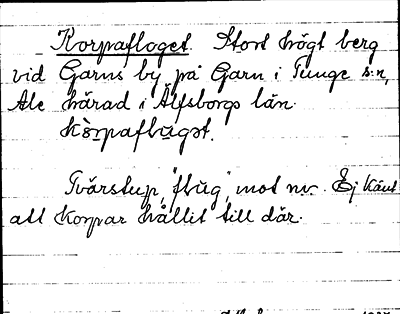 Korpafloget. Stort högt berg
vid Garns by på Garn i Tunge s:n,
Ale härad i Älfsborgs län.
Kòrpaflugət.
Tvärstup, "flug", mot nv. Ej känt
att Korpar hållit till där.